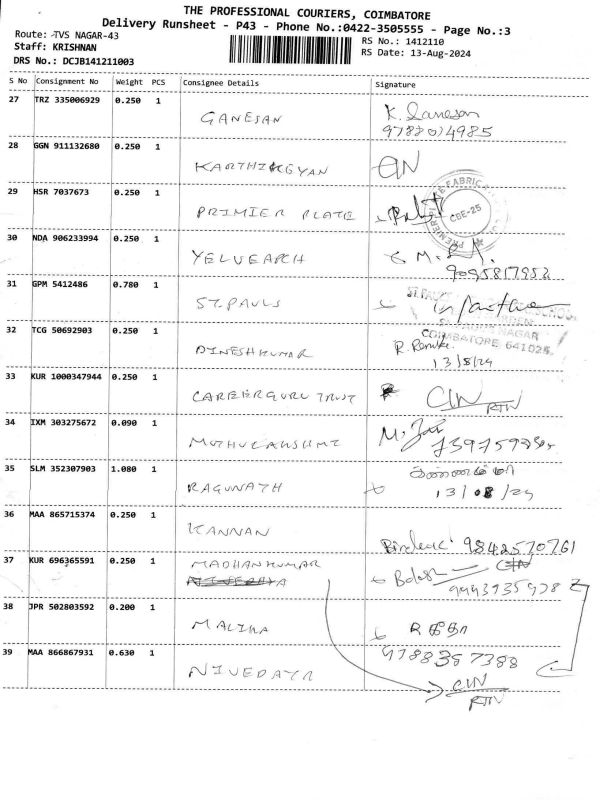 THE PROFESSIONAL COURIERS, COIMBATORE
Delivery Runsheet - P43 - Phone No.:0422-3505555 - Page No.:3
Route: -TVS NAGAR-43
RS No.: 1412110
Staff: KRISHNAN
RS Date: 13-Aug-2024
DRS No.: DCJB141211003
S No Consignment No Weight PCS Consignee Details Signature
27 TRZ 335006929 0.250 1 GANESAN K. Ganesan
28 GGN 911132680 0.250 1 KARTHIKGYAN
29 HSR 7037673 0.250 1 PRIMIER PLATE
CBE-25
30 NDA 906233994 0.250 1 YELVEARCH
9095817952
31 GPM 5412486 0.780 1 ST.PAULS
COIMBATORE 641025.
32 TCG 50692903 0.250 1 DINESHKUMAR R. Renuka
13/8/24
33 KUR 1000347944 0.250 1 CAREERGURU TRUST
RTN
34 IXM 303275672 0.090 1 MUTHULAKSHMI
35 SLM 352307903 1.080 1 RAGUNATH
13/08/24
36 MAA 865715374 0.250 1 KANNAN 9842570761
37 KUR 696365591 0.250 1 MADHANKUMAR
38 JPR 502803592 0.200 1 MALIKA
39 MAA 866867931 0.630 1 NIVEDAYA 9788357388
RTN